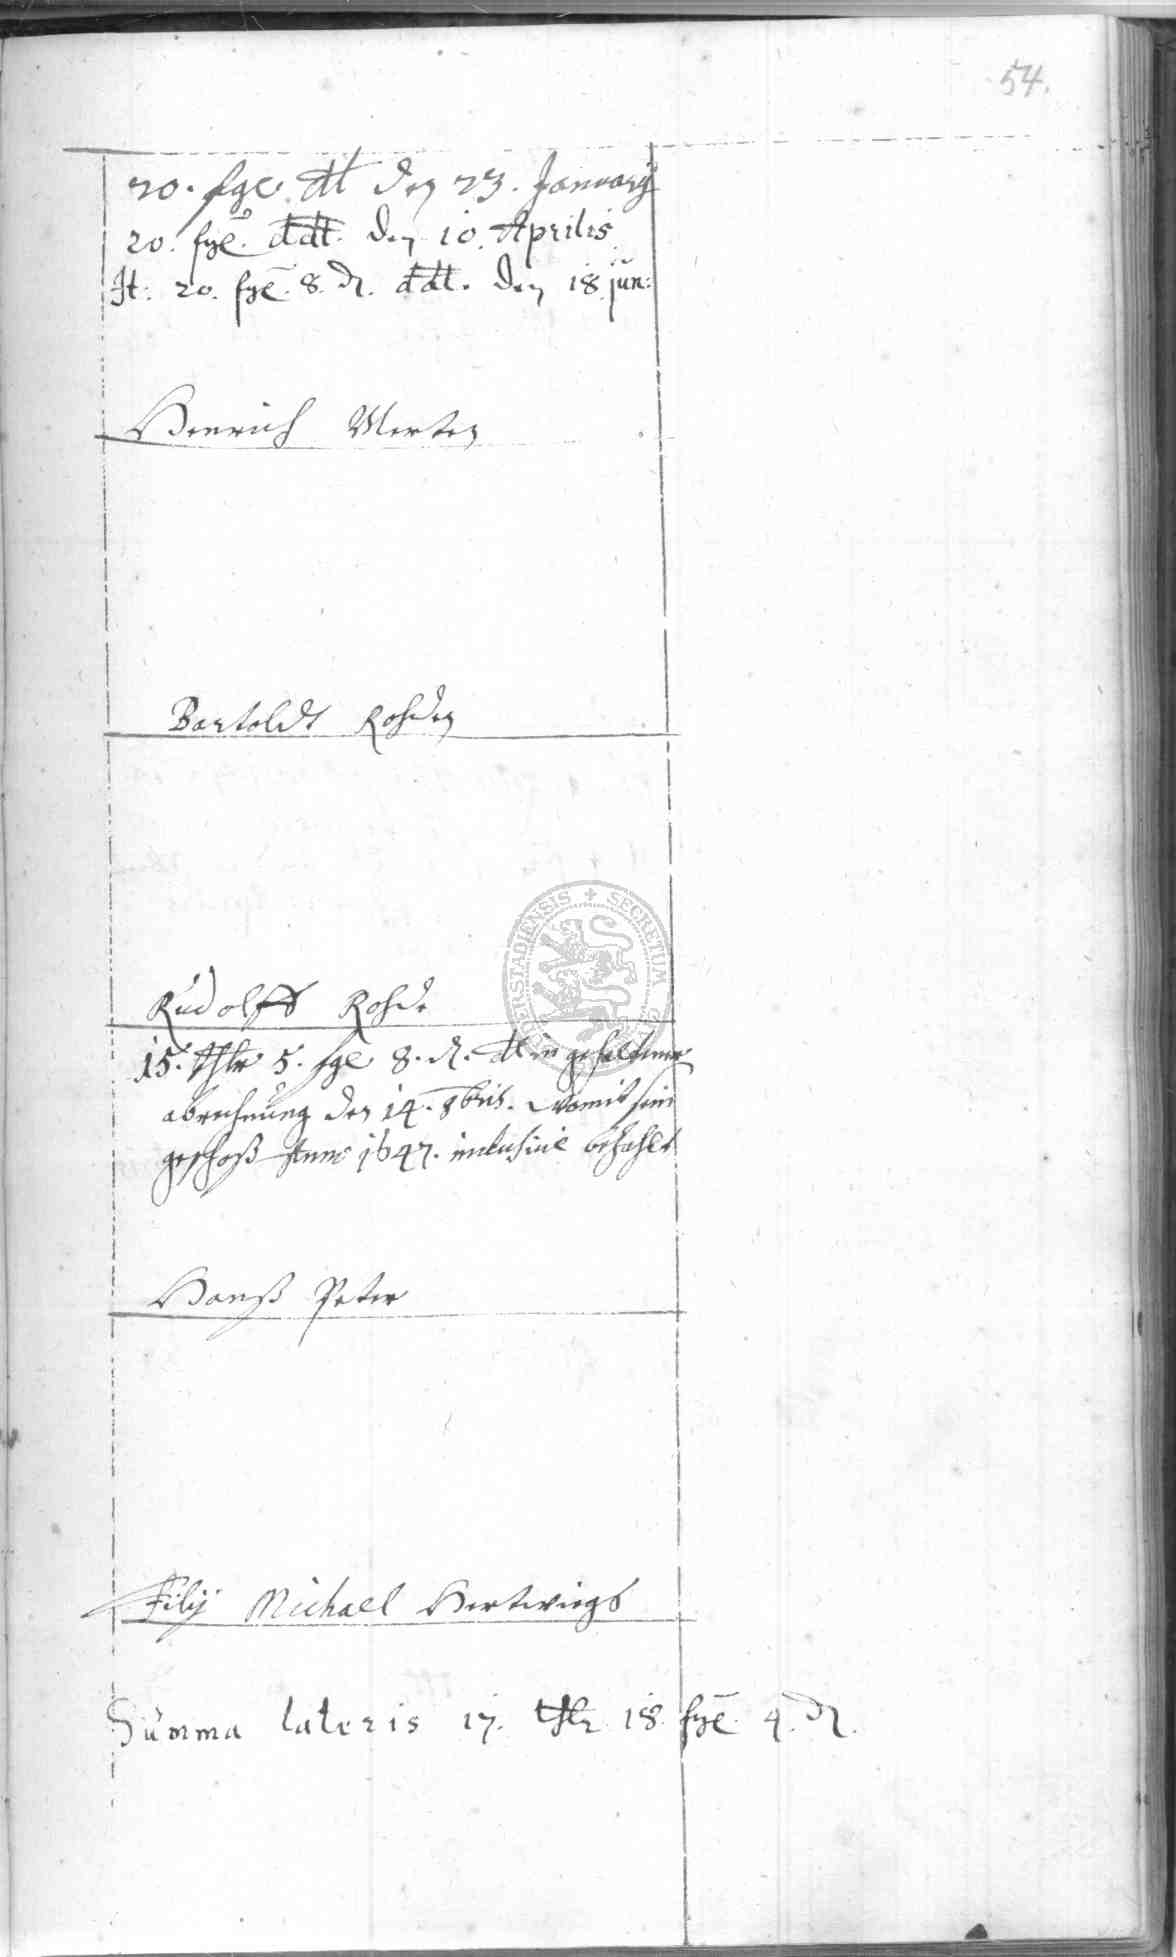 54.
20. sge. dt den 23. January
20. sge. ddt. den 10. Aprilis
It: 20. sge. 8. d. ddt. den 18. jun:
Henrich Merten
Bartoldt Rohden
Rudolff Rohde
15. thlr 5. sge 8. d. dt in gehaltener
abrechnung den 14. 8bris. Womit sein
geschoß Anno 1647. inclusive bezahlt
Hanß Peter
Filij Michael Hertwigs
Summa lateris 17. thlr 18 sge. 4. d.
SECRETUM